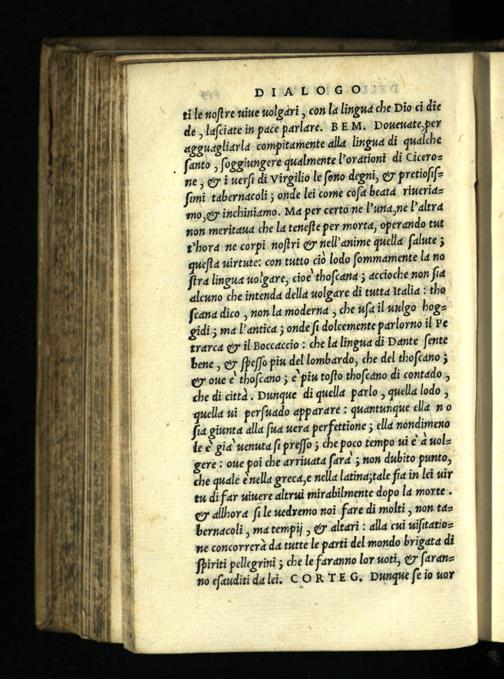 DIALOGO
ti le nostre viue volgari, con la lingua che Dio ci die
de, lasciate in pace parlare. BEM. Doueuate, per
agguagliarla compitamente alla lingua di qualche
santo, soggiungere qualmente l'orationi di Cicero=
ne, & i versi di Virgilio le sono degni, & pretiosis=
simi tabernacoli; onde lei come cosa beata riueria=
mo, & inchiniamo. Ma per certo ne l'una, ne l'altra
non meritaua che la teneste per morta, operando tut
t'hora ne corpi nostri & nell'anime quella salute;
questa virtute: con tutto ciò lodo sommamente la no
stra lingua volgare, cioè thoscana; accioche non sia
alcuno che intenda della volgare di tutta Italia: tho
scana dico, non la moderna, che usa il vulgo hog=
gidi; ma l'antica; onde si dolcemente parlorno il Pe
trarca & il Boccaccio: che la lingua di Dante sente
bene, & spesso piu del lombardo, che del thoscano;
& oue è thoscano; è piu tosto thoscano di contado,
che di città. Dunque di quella parlo, quella lodo,
quella vi persuado apparare: quantunque ella no
sia giunta alla sua vera perfettione; ella nondimeno
le è già venuta si presso; che poco tempo vi è à vol=
gere: oue poi che arriuata sarà; non dubito punto,
che quale è nella greca, e nella latina; tale fia in lei vir
tu di far viuere altrui mirabilmente dopo la morte.
& allhora si le vedremo noi fare di molti, non ta=
bernacoli, ma tempij, & altari: alla cui visitatio=
ne concorrerà da tutte le parti del mondo brigata di
spiriti pellegrini; che le faranno lor voti, & saran=
no esauditi da lei. CORTEG. Dunque se io vor